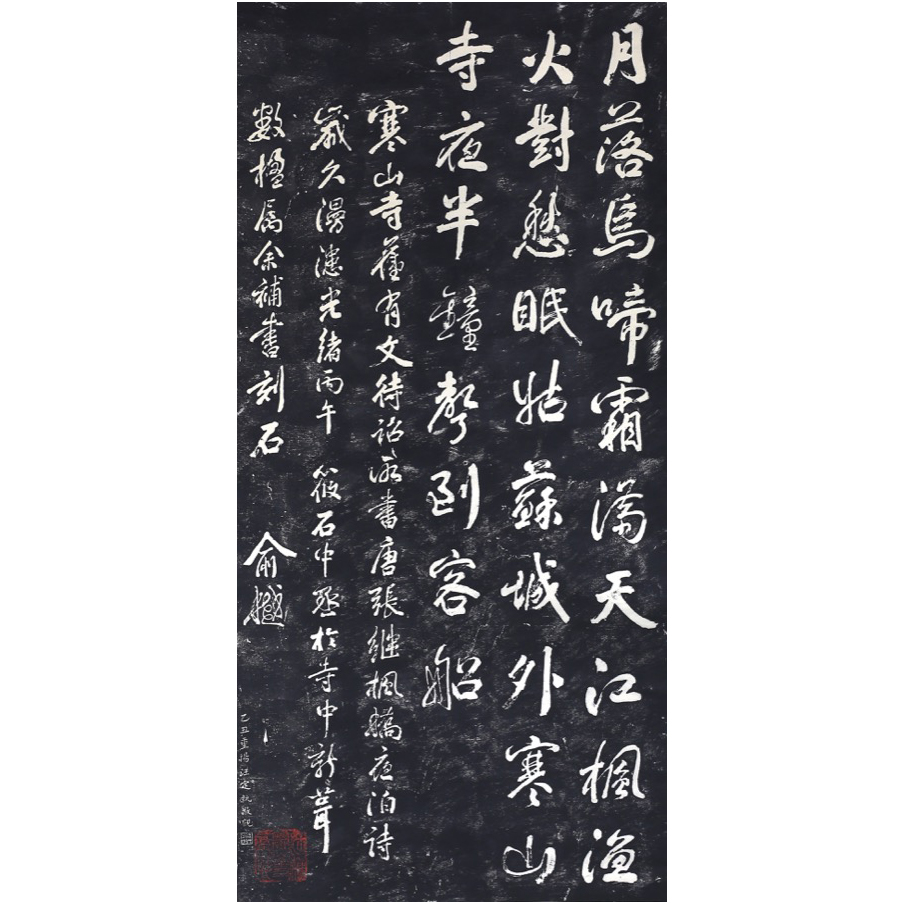 月落烏啼霜滿天江楓漁
火對愁眠姑蘇城外寒山
寺夜半鐘聲到客船
寒山寺舊有文待詔所書唐張繼楓橋夜泊詩
歲久漫漶光緒丙午 筱石中丞於寺中新葺
數楹屬余補書刻石 俞樾
乙丑重